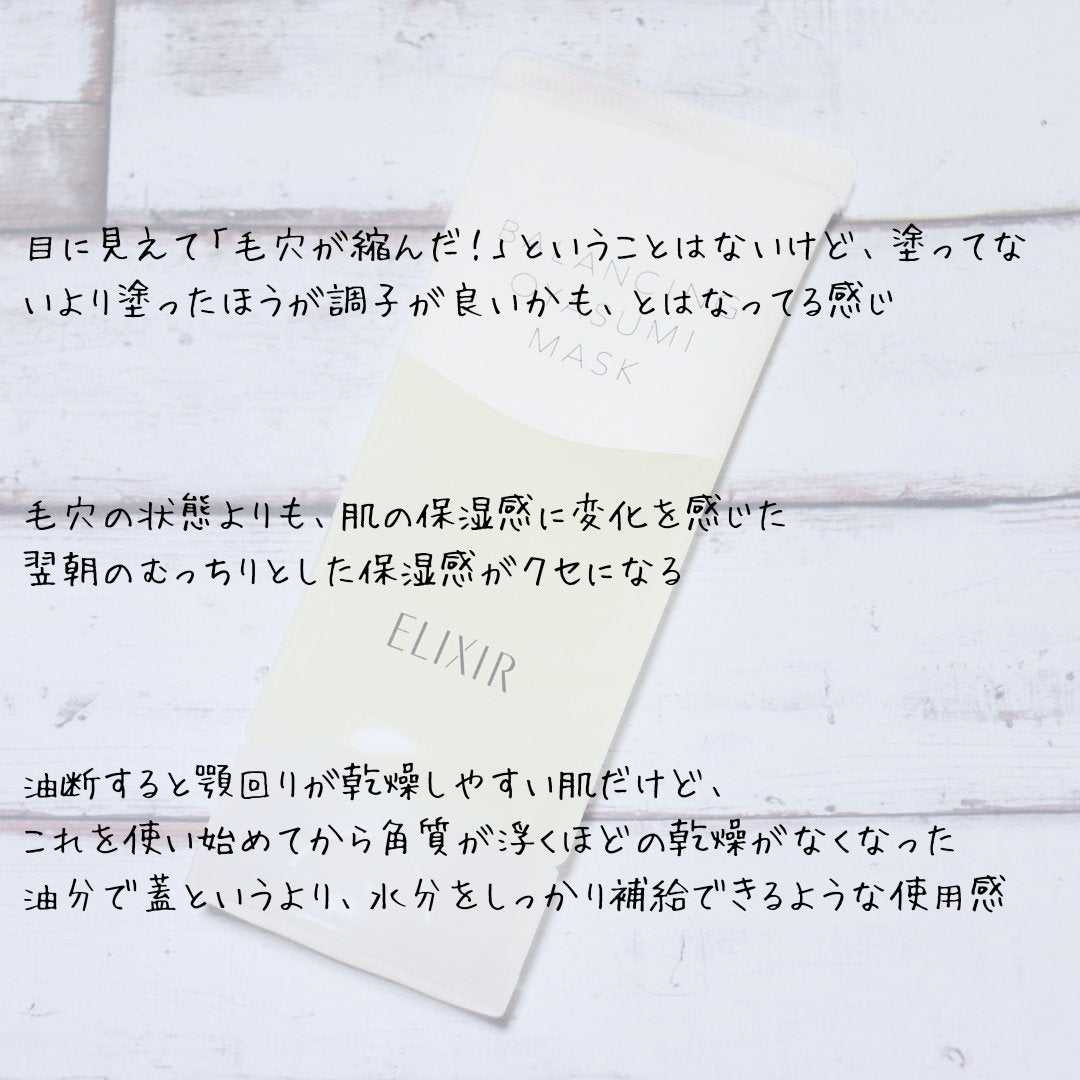 目に見えて「毛穴が縮んだ!」ということはないけど、塗ってな
いより塗ったほうが調子が良いかも、とはなってる感じ
BALANCING
OYASUMI
MASK
毛穴の状態よりも、肌の保湿感に変化を感じた
翌朝のむっちりとした保湿感がクセになる
ELIXIR
油断すると顎回りが乾燥しやすい肌だけど、
これを使い始めてから角質が浮くほどの乾燥がなくなった
油分で蓋というより、水分をしっかり補給できるような使用感